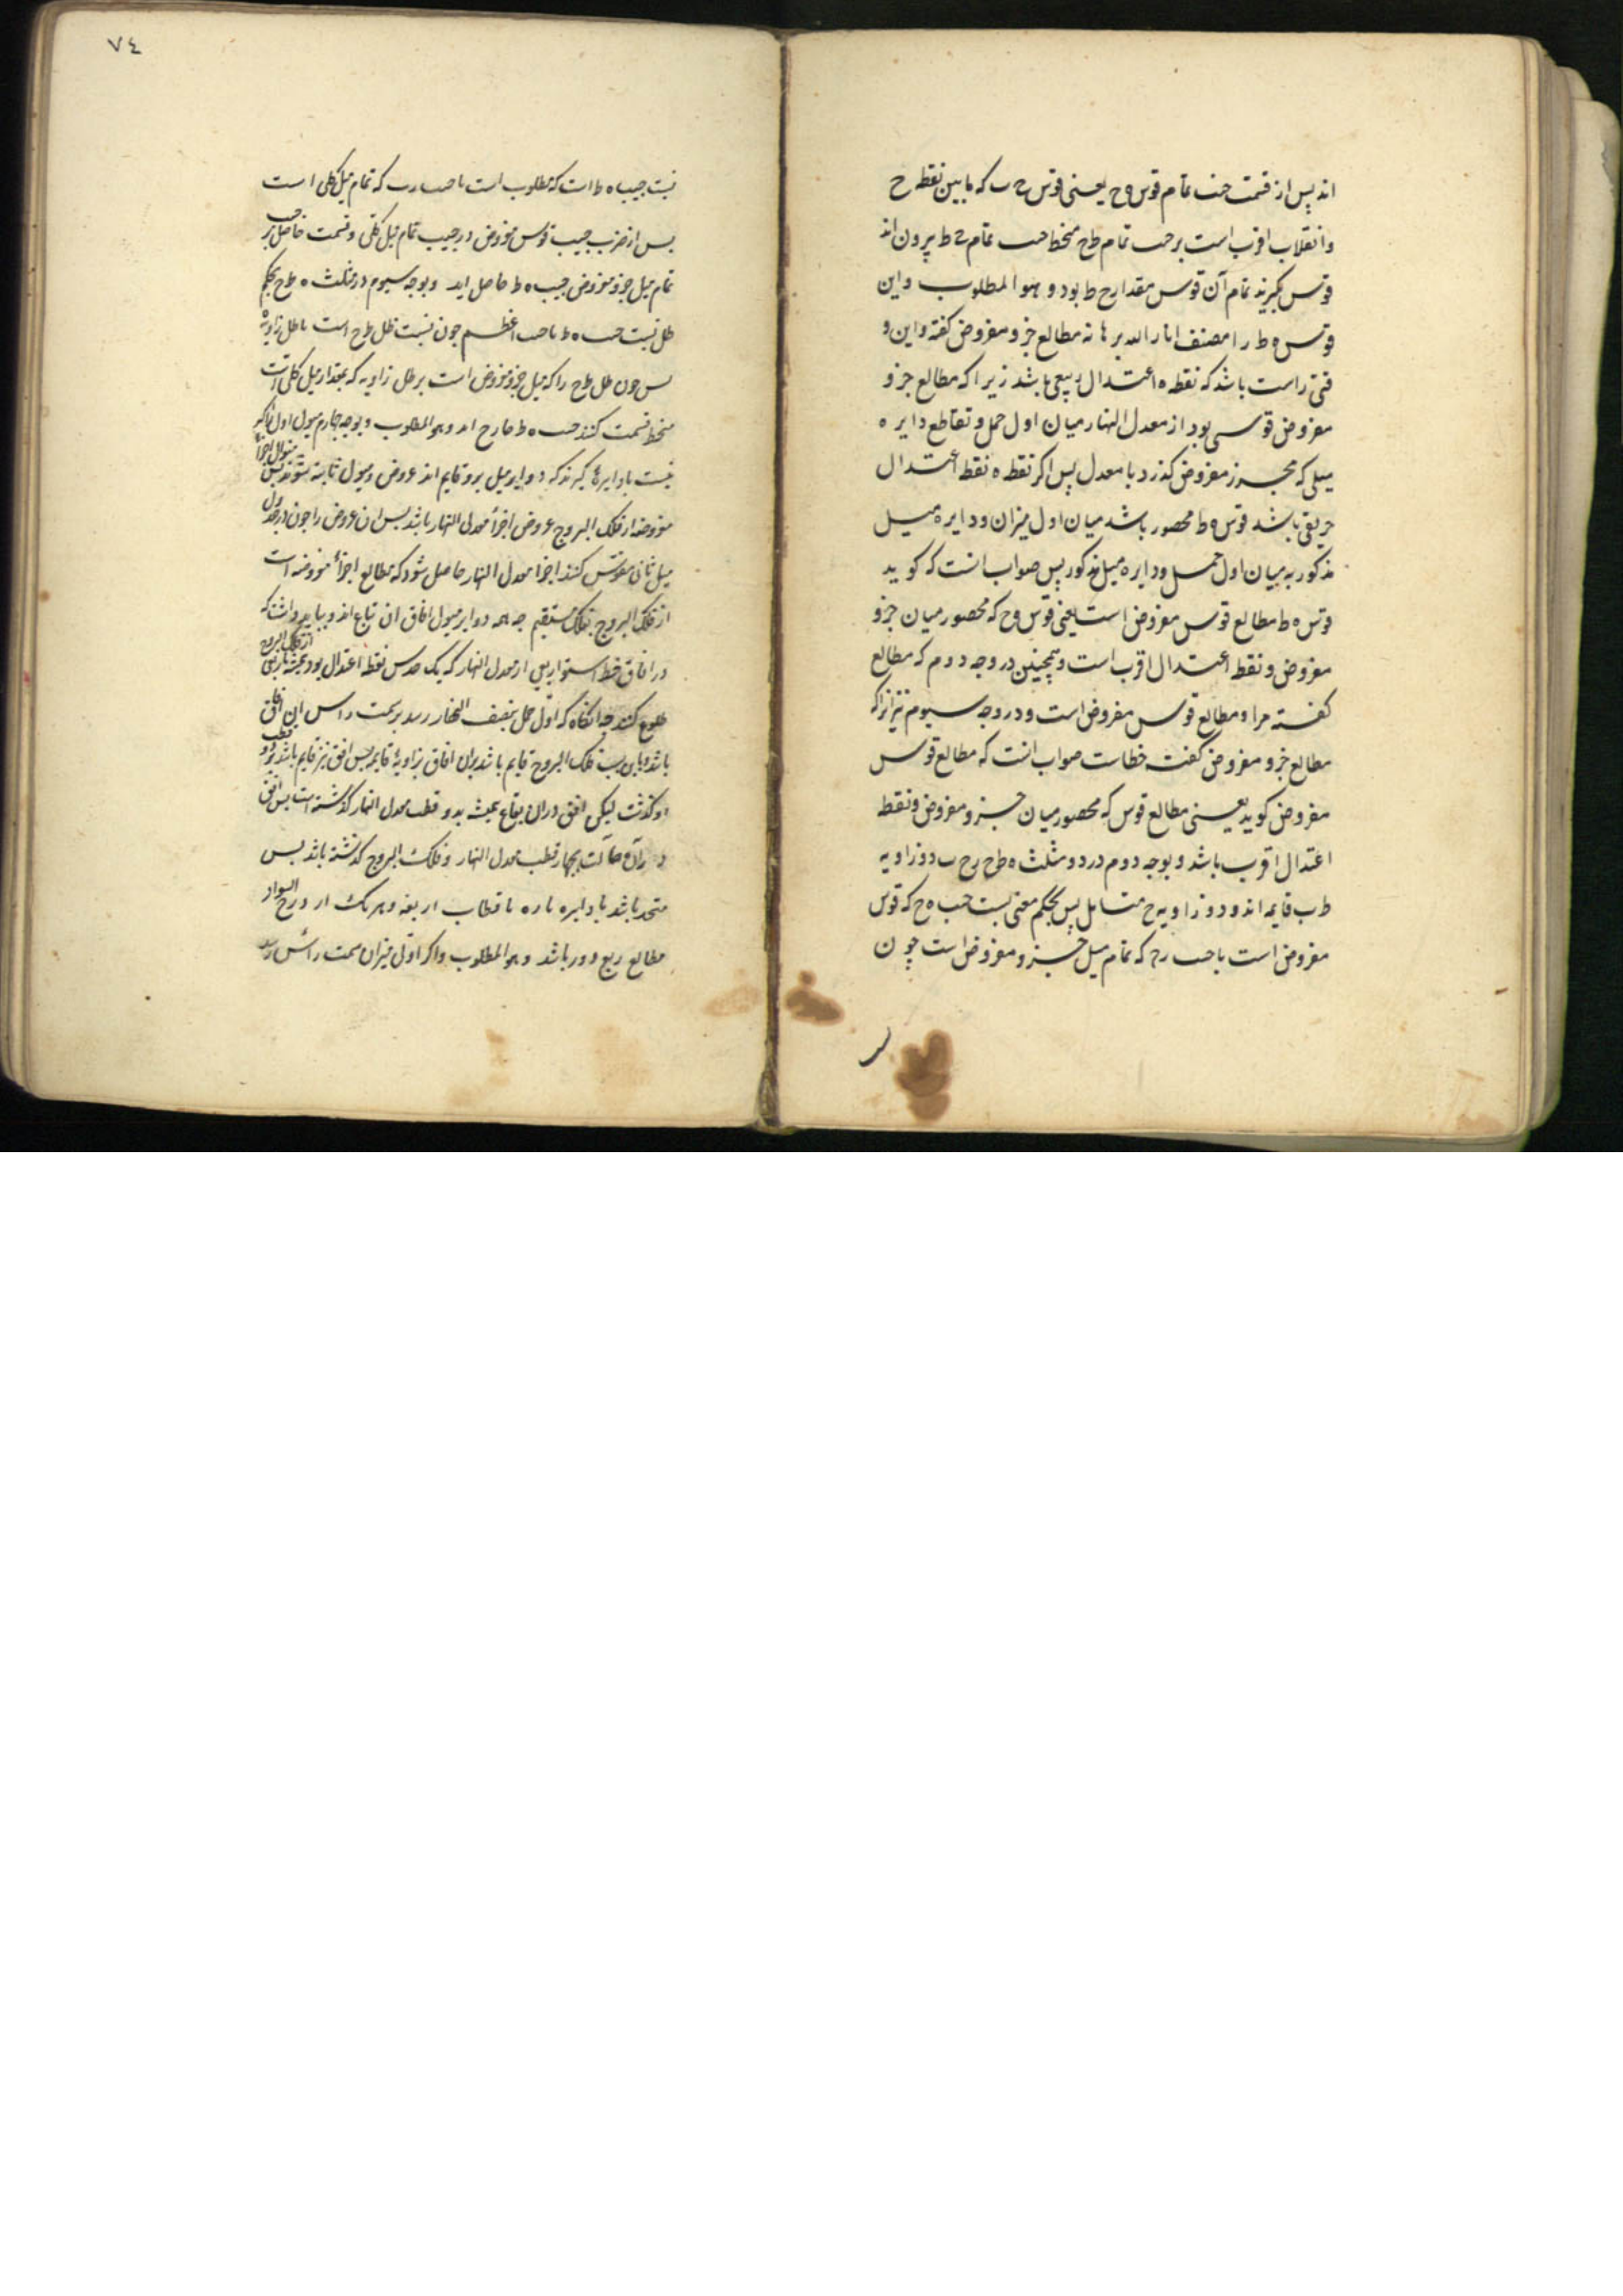 اند پس از قسمت جیب تمام قوس ه ح یعنی قوس ح ب که مابین نقطه ح
و انقلاب اقرب است بر جیب تمام طح منحط جیب تمام ه ط بیرون اند
قوس بگیرند تمام آن قوس مقدار ه ط بود و هو المطلوب و این
قوس ه ط را مصنف انار الله برهانه مطالع جزو مفروض گفته و این و
قتی راست باشد که نقطه ه اعتدال ربیعی باشد زیرا که مطالع جزو
مفروض قوسی بود از معدل النهار میان اول حمل و تقاطع دایره
میلی که بجزو مفروض گذرد با معدل پس اگر نقطه ه نقطه اعتدال
خریفی باشد قوس ه ط محصور باشد میان اول میزان و دایره میل
مذکور نه میان اول حمل و دایره میل مذکور پس صواب انست که گوید
قوس ه ط مطالع قوس مفروض است یعنی قوس ه ح که محصور میان جزو
مفروض و نقطه اعتدال اقرب است و همچنین در وجه دوم که مطالع
گفته مراد مطالع قوس مفروض است و در وجه سیوم نیز انکه
مطالع جزو مفروض گفت خطاست صواب انست که مطالع قوس
مفروض گوید یعنی مطالع قوس که محصور میان جزو مفروض و نقطه
اعتدال اقرب باشد و بوجه دوم در دو مثلث ه ط ح ر ح ب دو زاویه
ط ب قایمه اند و دو زاویه ح متقابل پس بحکم مغنی نسبت جیب ه ح که قوس
مفروض است با جیب ر ح که تمام میل جزو مفروض است چون
٧٤
نسبت جیب ه ط است که مطلوب است با جیب ر ب که تمام میل کلی است
پس از ضرب جیب قوس مفروض در جیب تمام میل کلی و قسمت حاصل بر جیب
تمام میل جزو مفروض جیب ه ط حاصل اید و بوجه سیوم در مثلث ه ط ح بحکم
ظلی نسبت جیب ه ط با جیب اعظم چون نسبت ظل ط ح است با ظل زاویه ه
پس چون ظل ط ح را که میل جزو مفروض است بر ظل زاویه که بمقدار میل کلی است
منحط قسمت کنند جیب ه ط خارج اید و هو المطلوب و بوجه چهارم میول اول اگر
نسبت با دایرها گیرند که دوایر میل برو قایم اند عروض و میول ثانیه شوند پس میول اجزا
مفروضه از فلک البروج عروض اجزا معدل النهار باشد پس ان عروض را چون در جدول
میل ثانی مقوس کنند اجزا معدل النهار حاصل شود که مطالع اجزاء مفروضه است
از فلک البروج بفلک مستقیم چه همه دوایر میول افاق ان بقاع اند و بباید دانست که
در افاق خط استوا ربعی از معدل النهار که یک حدش نقطه اعتدال بود همیشه با ربعی از فلک البروج
طلوع کند چه انگاه که اول حمل بنصف النهار رسد بر سمت راس ان افاق
باشد باین سبب فلک البروج قایم باشد بران افاق بزاویه قایمه پس افق نیز قایم باشد برو و قطب
او گذشت لیکن افق دران بقاع همیشه بدو قطب معدل النهار گذشته است پس افق
دران حالت بچهار قطب معدل النهار و فلک البروج گذشته باشد پس
متحد باشد با دایره ماره باقطاب اربعه و هر یک از درج السواء
مطالع ربع دور باشد و هو المطلوب و اگر اول میزان بسمت راس رسد